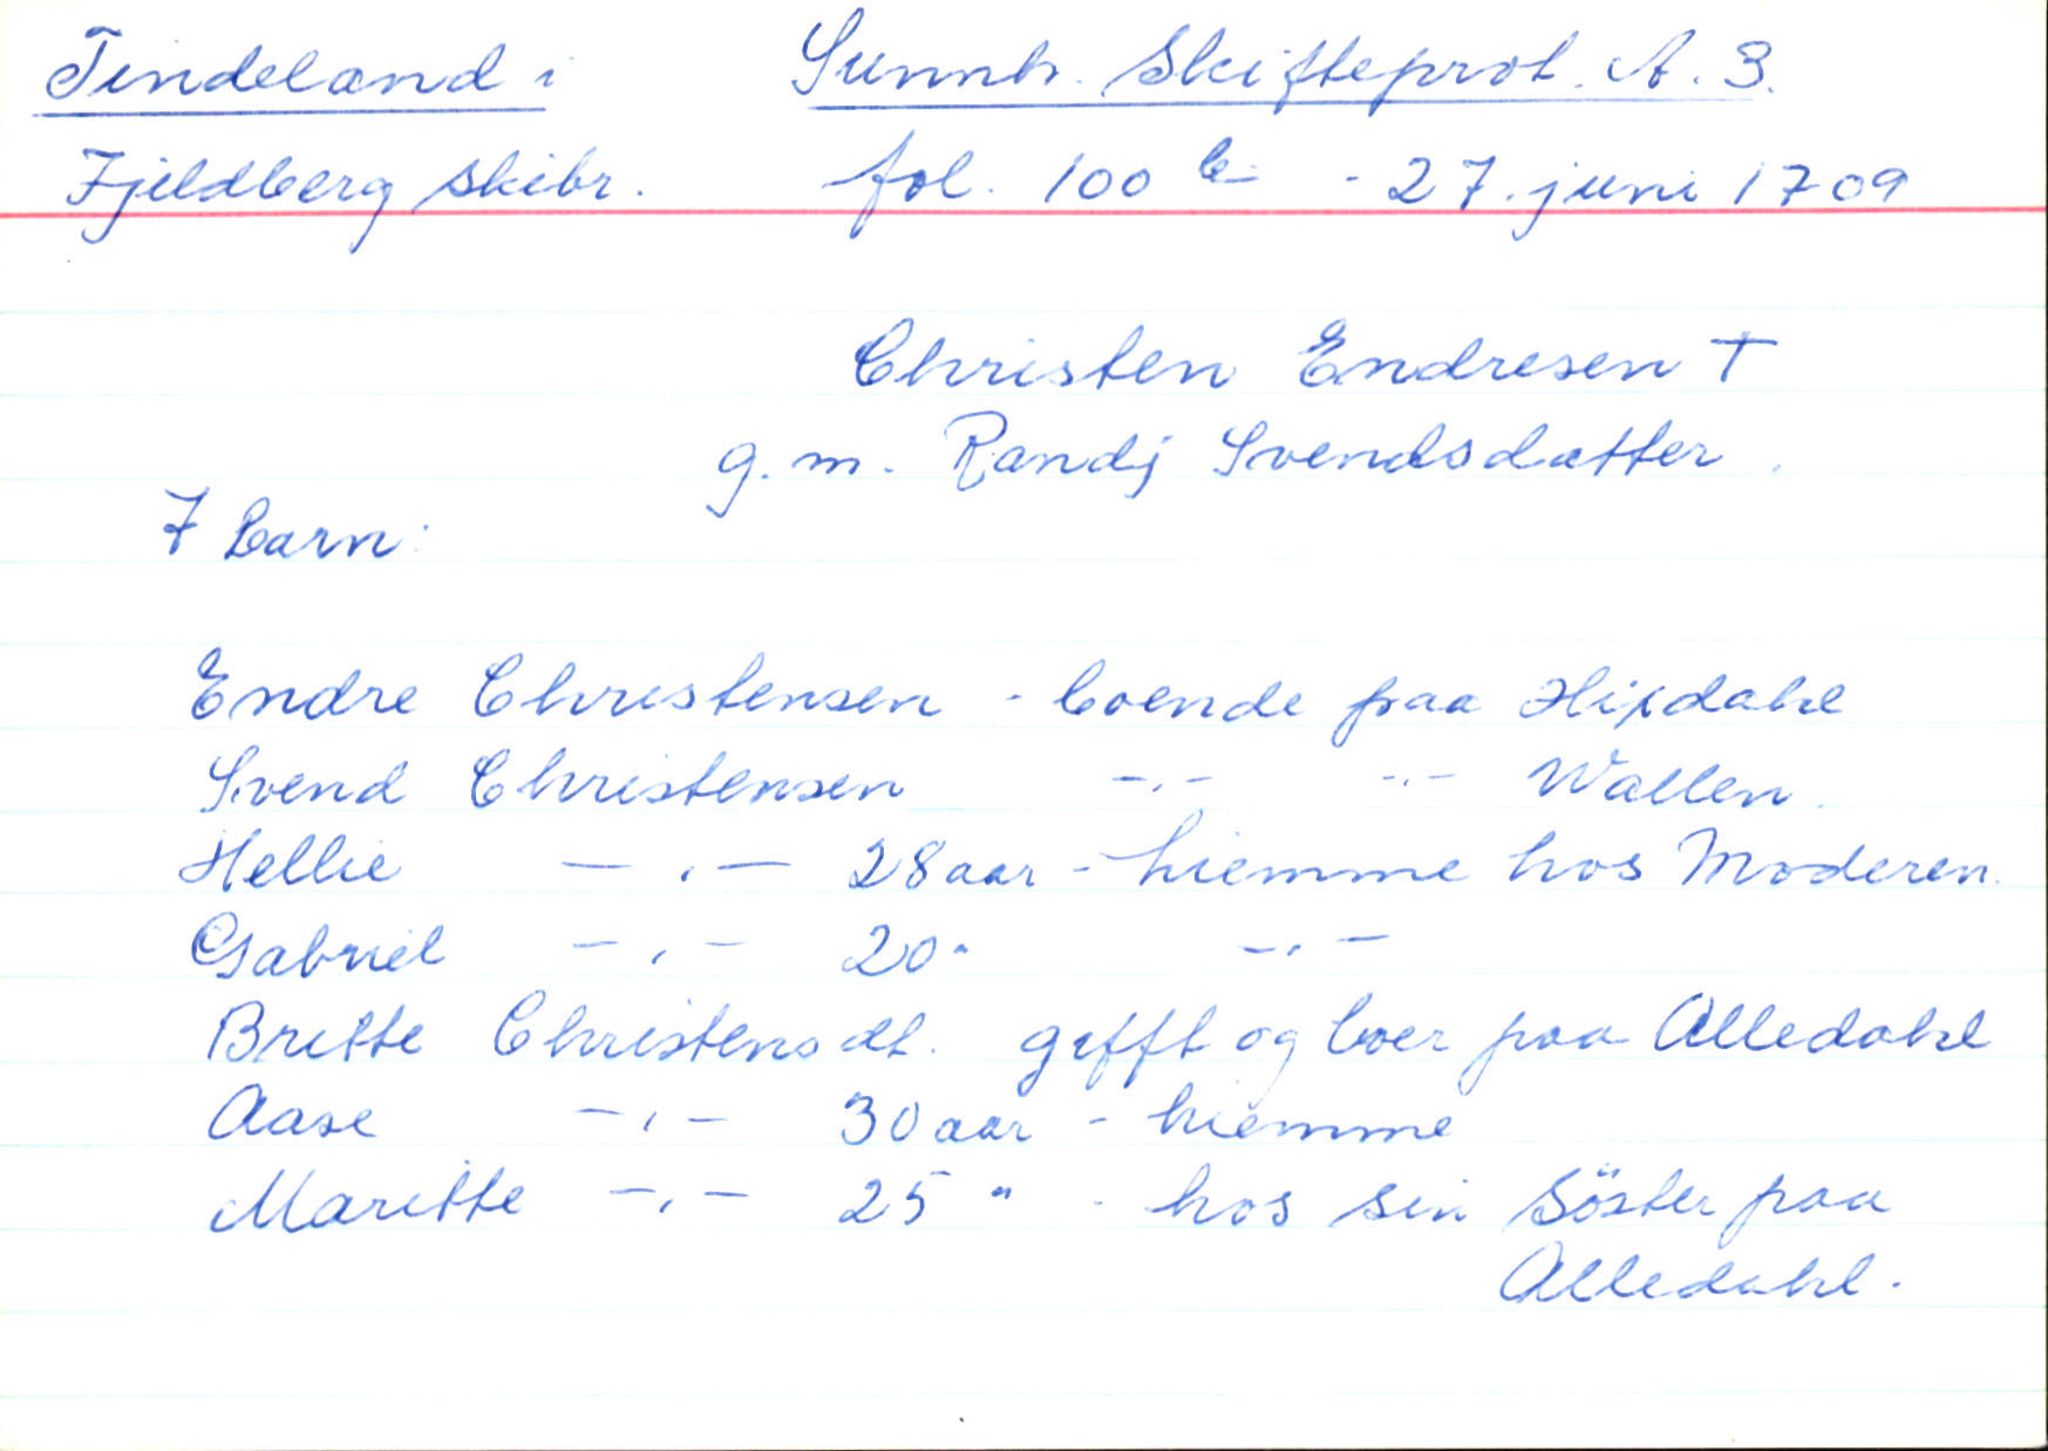 Tindeland i Sunnh. Skifteprot. A. 3.
Fjeldberg skibr. fol. 100 b - 27. juni 1709
Christen Endresen †
g. m. Randj Svendsdatter.
7 barn:
Endre Christensen - boende paa Hixdahl
Svend Christensen -"- -"- Wallen.
Hellie -"- 28 aar - hiemme hos Moderen.
Gabriel -"- 20 " -"-
Britte Christensdt. gifft og boer paa Alledahl
Aase -"- 30 aar - hiemme
Maritte -"- 25 " - hos sin Söster paa
Alledahl.